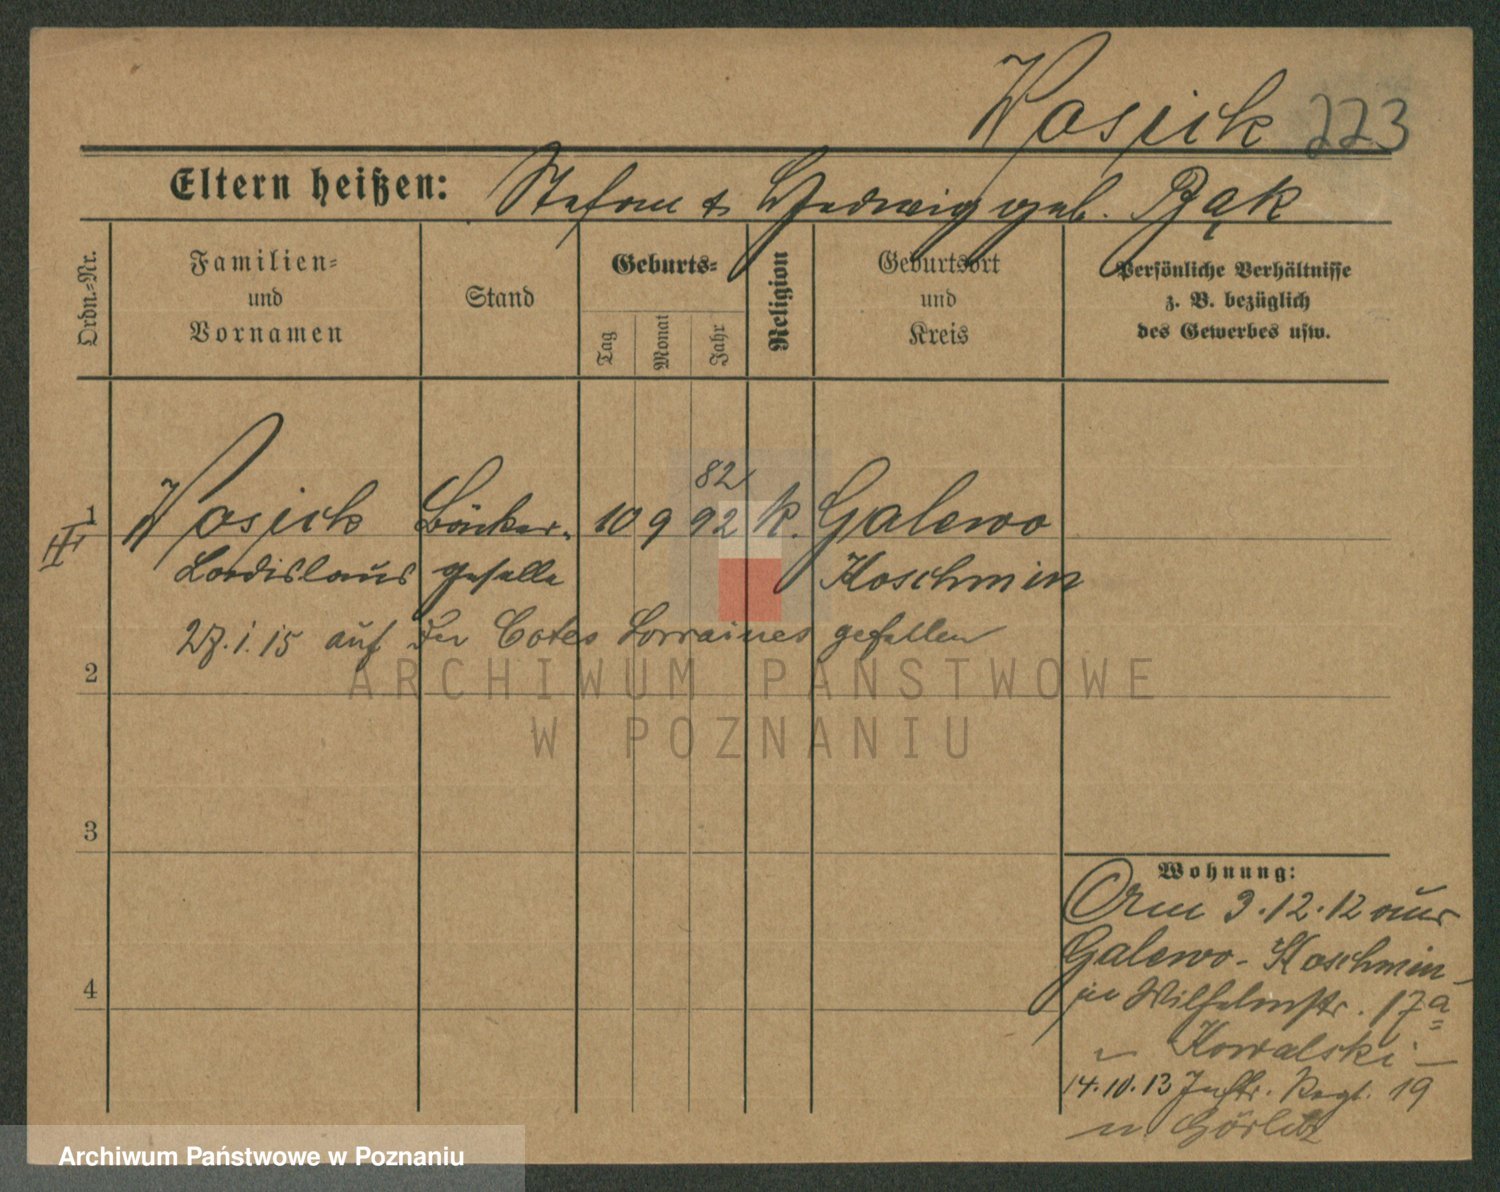 Wosick 223
Eltern heißen: Stefan & Hedwig geb. Bąk
Ordn.-Nr.
Familien-
und
Vornamen
Stand
Geburts-
Tag
Monat
Jahr
Religion
Geburtsort
und
Kreis
Persönliche Verhältnisse
z. B. bezüglich
des Gewerbes usw.
82
1 Wosick Bäcker- 10 9 92 k. Galewo
Ladislaus geselle Koschmin
27.1.15 auf den Cotes Lorraines gefallen
2
ARCHIWUM PAŃSTWOWE
W POZNANIU
3
4
Wohnung:
Am 3.12.12 aus
Galewo-Koschmin
in Wilhelmstr. 17a
Kowalski
14.10.13 Inftr. Regt. 19
n. Görlitz
Archiwum Państwowe w Poznaniu